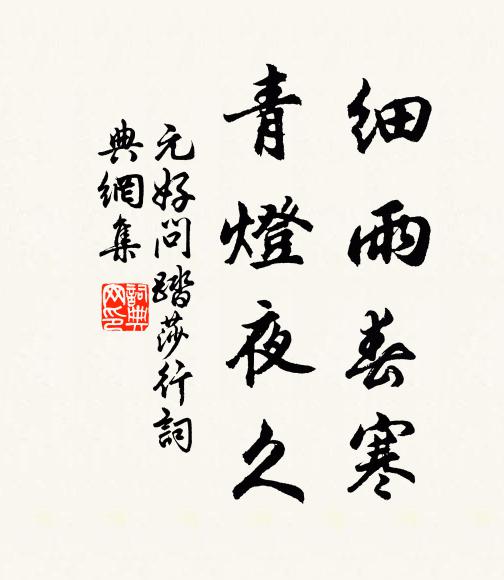 细雨春寒
青燈夜久
元好问踏莎行詞
典網集
詞典网印